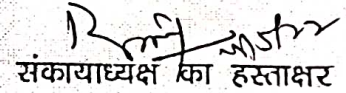 संकायाध्यक्ष का हस्ताक्षर